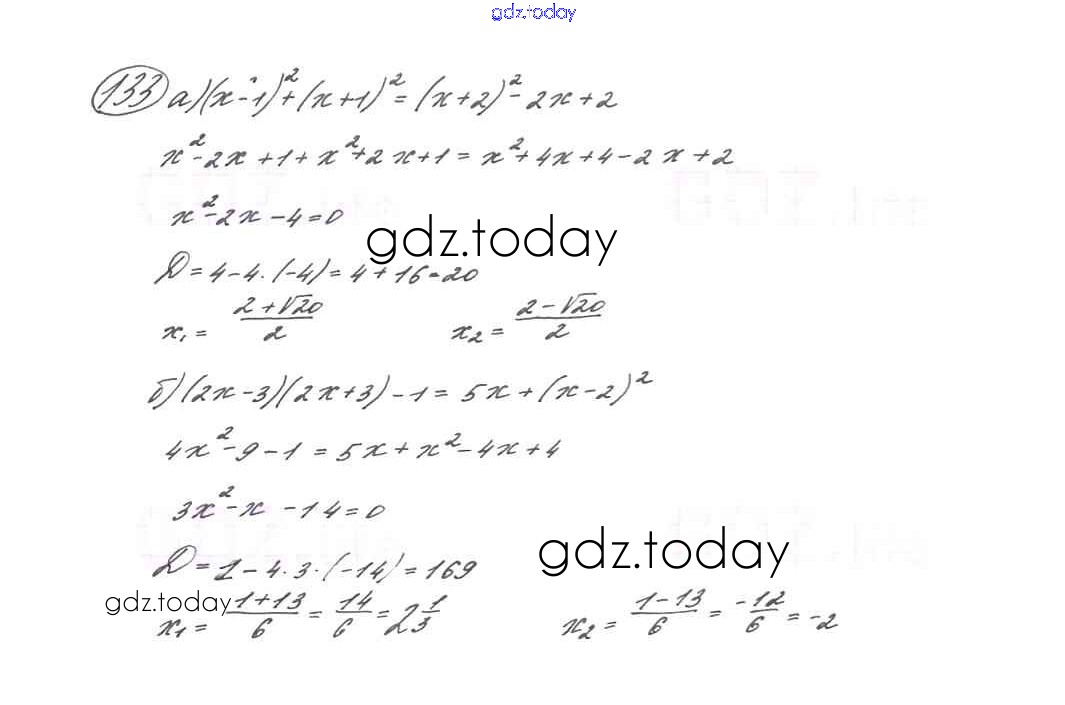 gdz.today
133 а) (x-1)² + (x+1)² = (x+2)² - 2x + 2
x² - 2x + 1 + x² + 2x + 1 = x² + 4x + 4 - 2x + 2
x² - 2x - 4 = 0
gdz.today
D = 4 - 4 · (-4) = 4 + 16 = 20
x₁ = (2 + √20)/2 x₂ = (2 - √20)/2
б) (2x - 3)(2x + 3) - 1 = 5x + (x - 2)²
4x² - 9 - 1 = 5x + x² - 4x + 4
3x² - x - 14 = 0
gdz.today
D = 1 - 4 · 3 · (-14) = 169
gdz.today
x₁ = (1 + 13)/6 = 14/6 = 2 1/3 x₂ = (1 - 13)/6 = -12/6 = -2